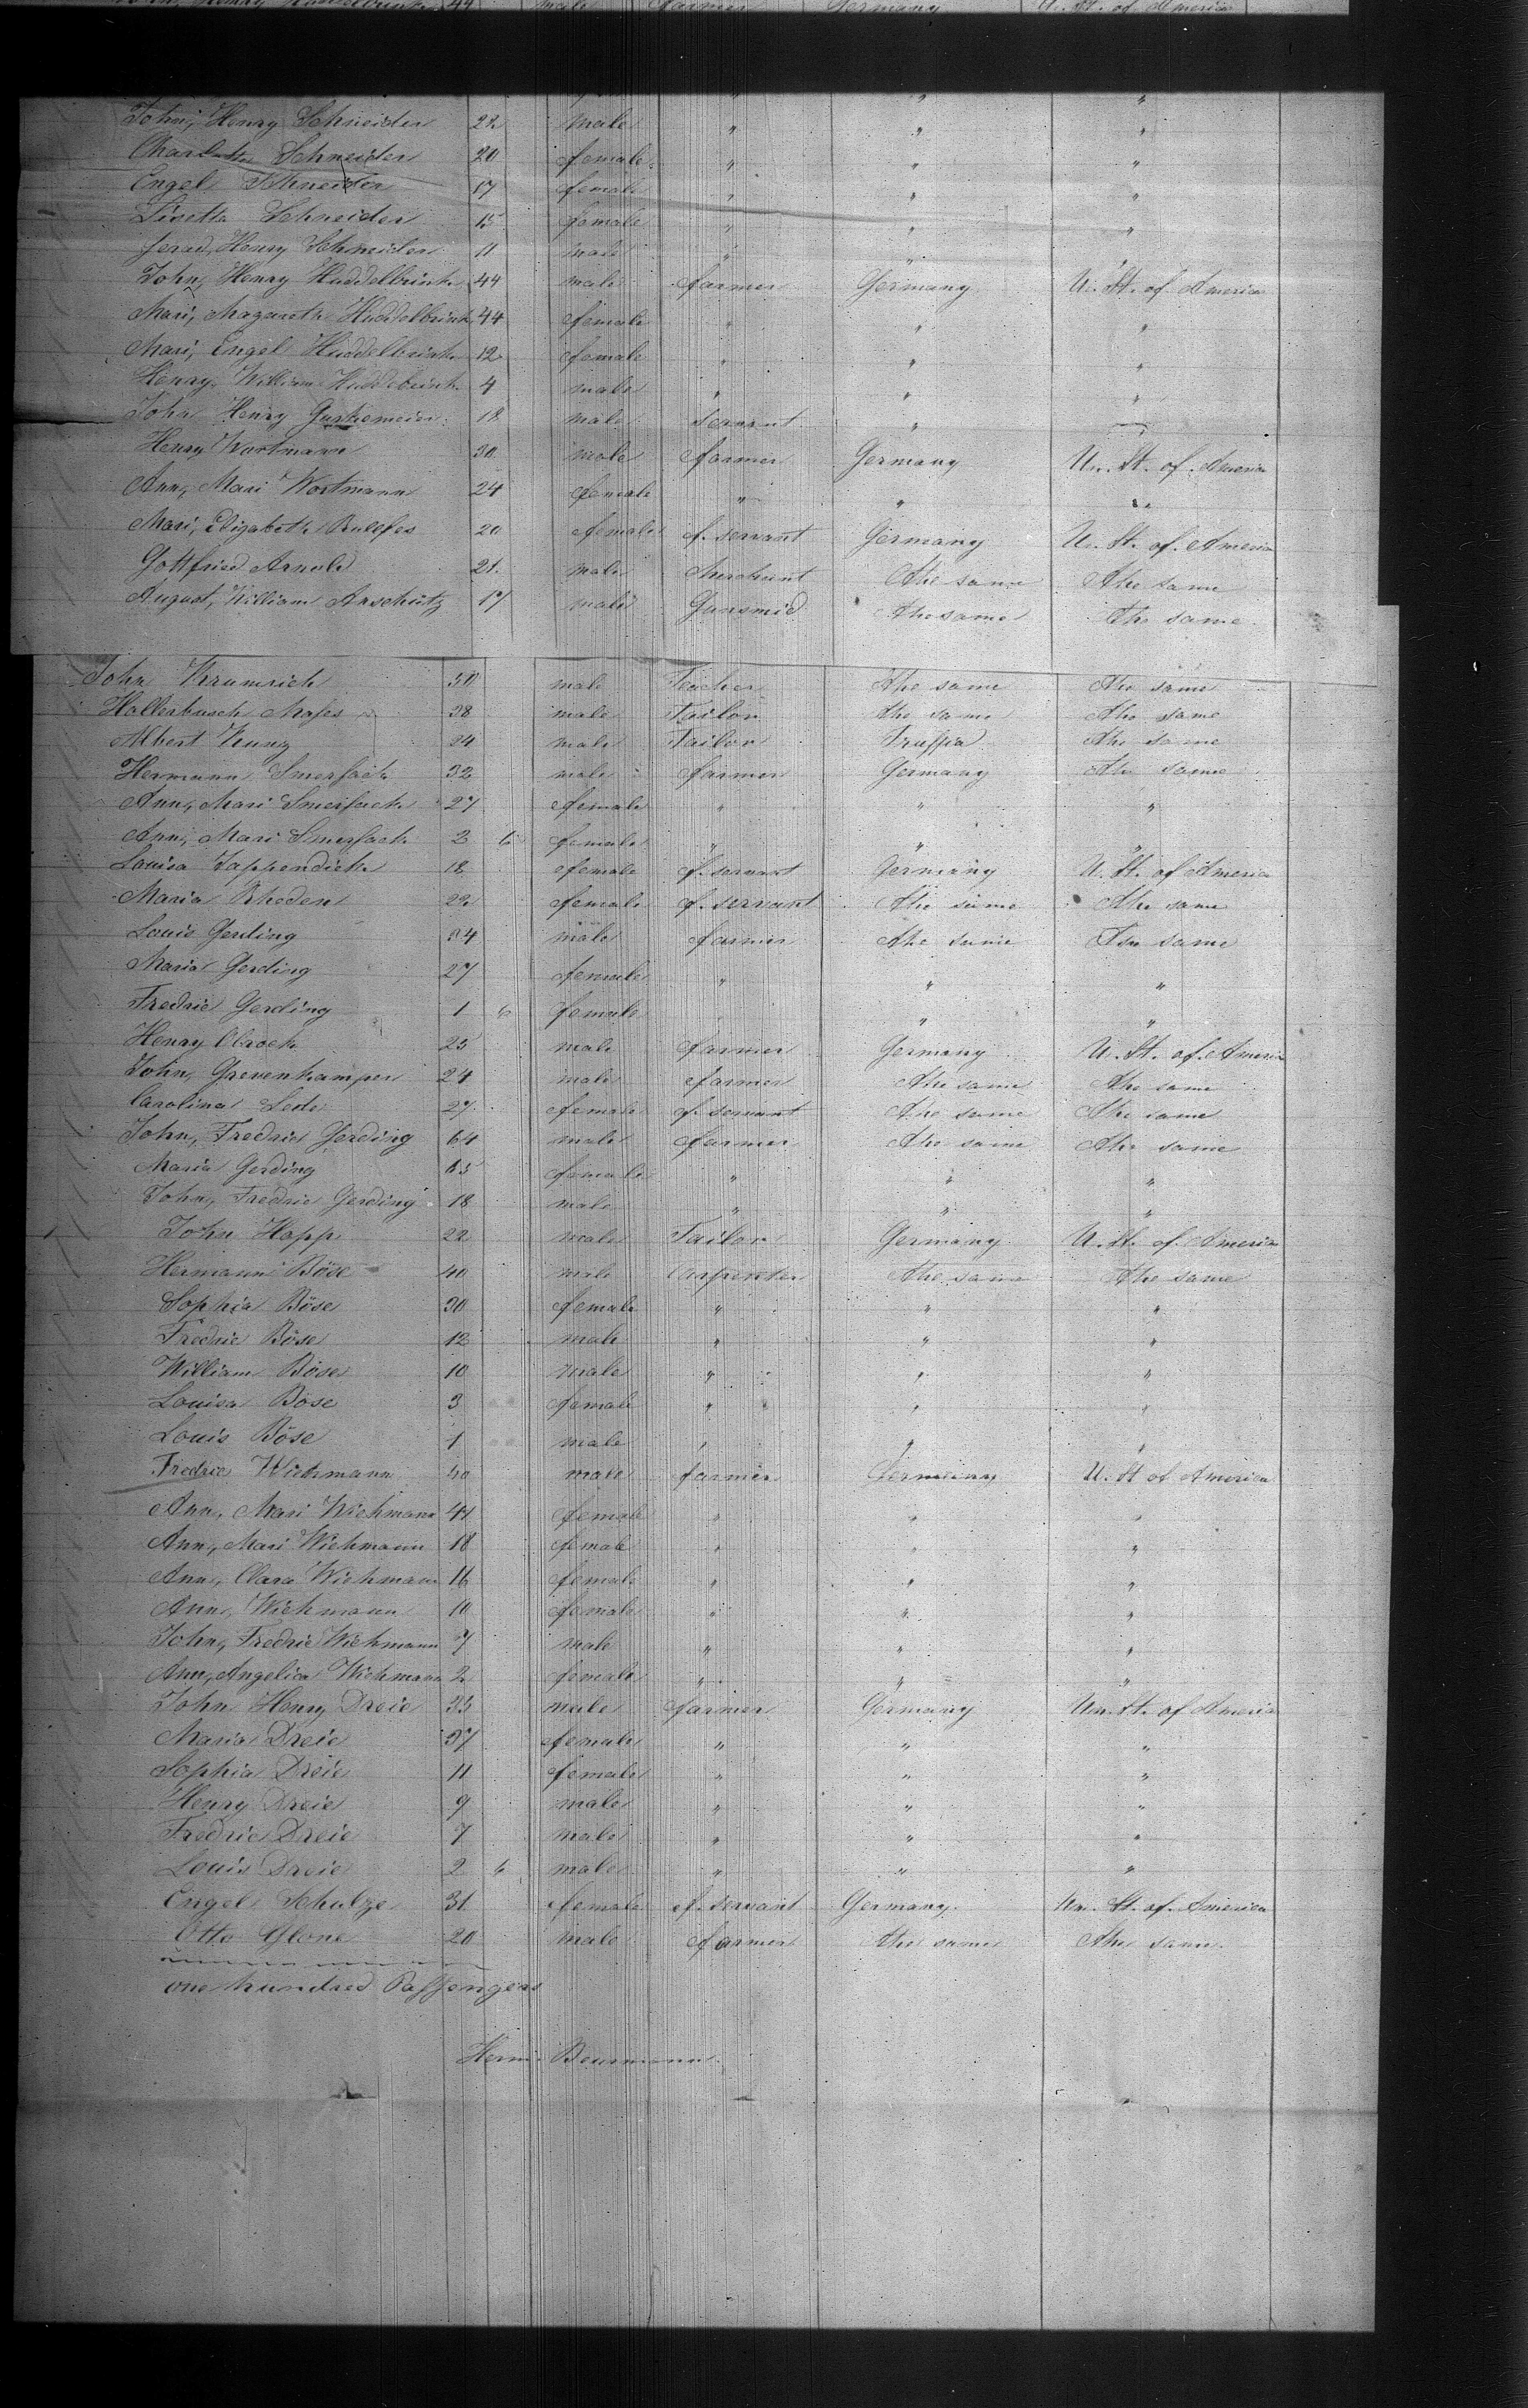 John, Henry Schneider 22 male " " "
Charlotte Schneider 20 female " " "
Engel Schneider 17 female " " "
Lisetta Schneider 15 female " " "
Henry Schneider 11 male " "
John, Henry Huddelbrink 44 male farmer Germany U. St. of America
Mari, Magareth Huddelbrink 44 female " " "
Mari, Engel Huddelbrink 12 female " " "
Henry William Huddelbrink 4 male " " "
John Henry 18 male servant "
Henry Wortmann 30 male farmer Germany Un. St. of America
Ann, Mari Wortmann 24 female " " "
Mari, Elizabeth 20 female f. servant Germany Un. St. of America
Gottfried Arnold 21 male Merchant the same the same
August, William Anschütz 17 male Gunsmid the same the same
John Krumrich male Teacher the same the same
Hallerbusch Moses 38 male Tailor the same the same
Albert Kunz 24 male Tailor Prussia the same
Hermann Smersach 32 male farmer Germany the same
Ann, Mari Smersach 27 female " " "
Ann, Mari Smersach 2 6 female " " "
Louisa Tappendick 18 female f. servant Germany U. St. of America
Maria Rheden 22 female f. servant the same the same
Louis Gerding 34 male farmer the same same
Maria Gerding 27 female " " "
Fredric Gerding 1 6 female " "
Henry 25 male farmer Germany U. St. of America
John, Grevenkamper 24 male farmer the same the same
Carolina 27 female f. servant the same the same
John, Fredric Gerding 64 male farmer the same the same
Maria Gerding female " " "
John, Fredric Gerding 18 male " " "
John Happ 22 male Tailor Germany U. St. of America
Hermann Böse 40 male Carpenter the same the same
Sophia Böse 30 female " " "
Fredric Böse 12 male " " "
William Böse 10 male " " "
Louisa Böse 3 female " " "
Louis Böse 1 male " " "
Fredric Wichmann 40 male farmer Germany U. St of America
Ann, Mari Wichmann 41 female " " "
Ann, Mari Wichmann 18 female " " "
Ann, Clara Wichmann 16 female " " "
Ann, Wichmann 10 female " " "
John, Fredric Wichmann 7 male " " "
Ann, Angelica Wichmann 2 female " " "
John Henry Dreie 33 male farmer Germany Un. St. of America
Maria Dreie 37 female " " "
Sophia Dreie 11 female " " "
Henry Dreie 9 male " " "
Fredric Dreie 7 male " " "
Louis Dreie 2 6 male " " "
Engel Schulze 31 female f. servant Germany Un. St. of America
Otto Glone 20 male farmer the same the same
one hundred Passengers
Herm. Beurmann